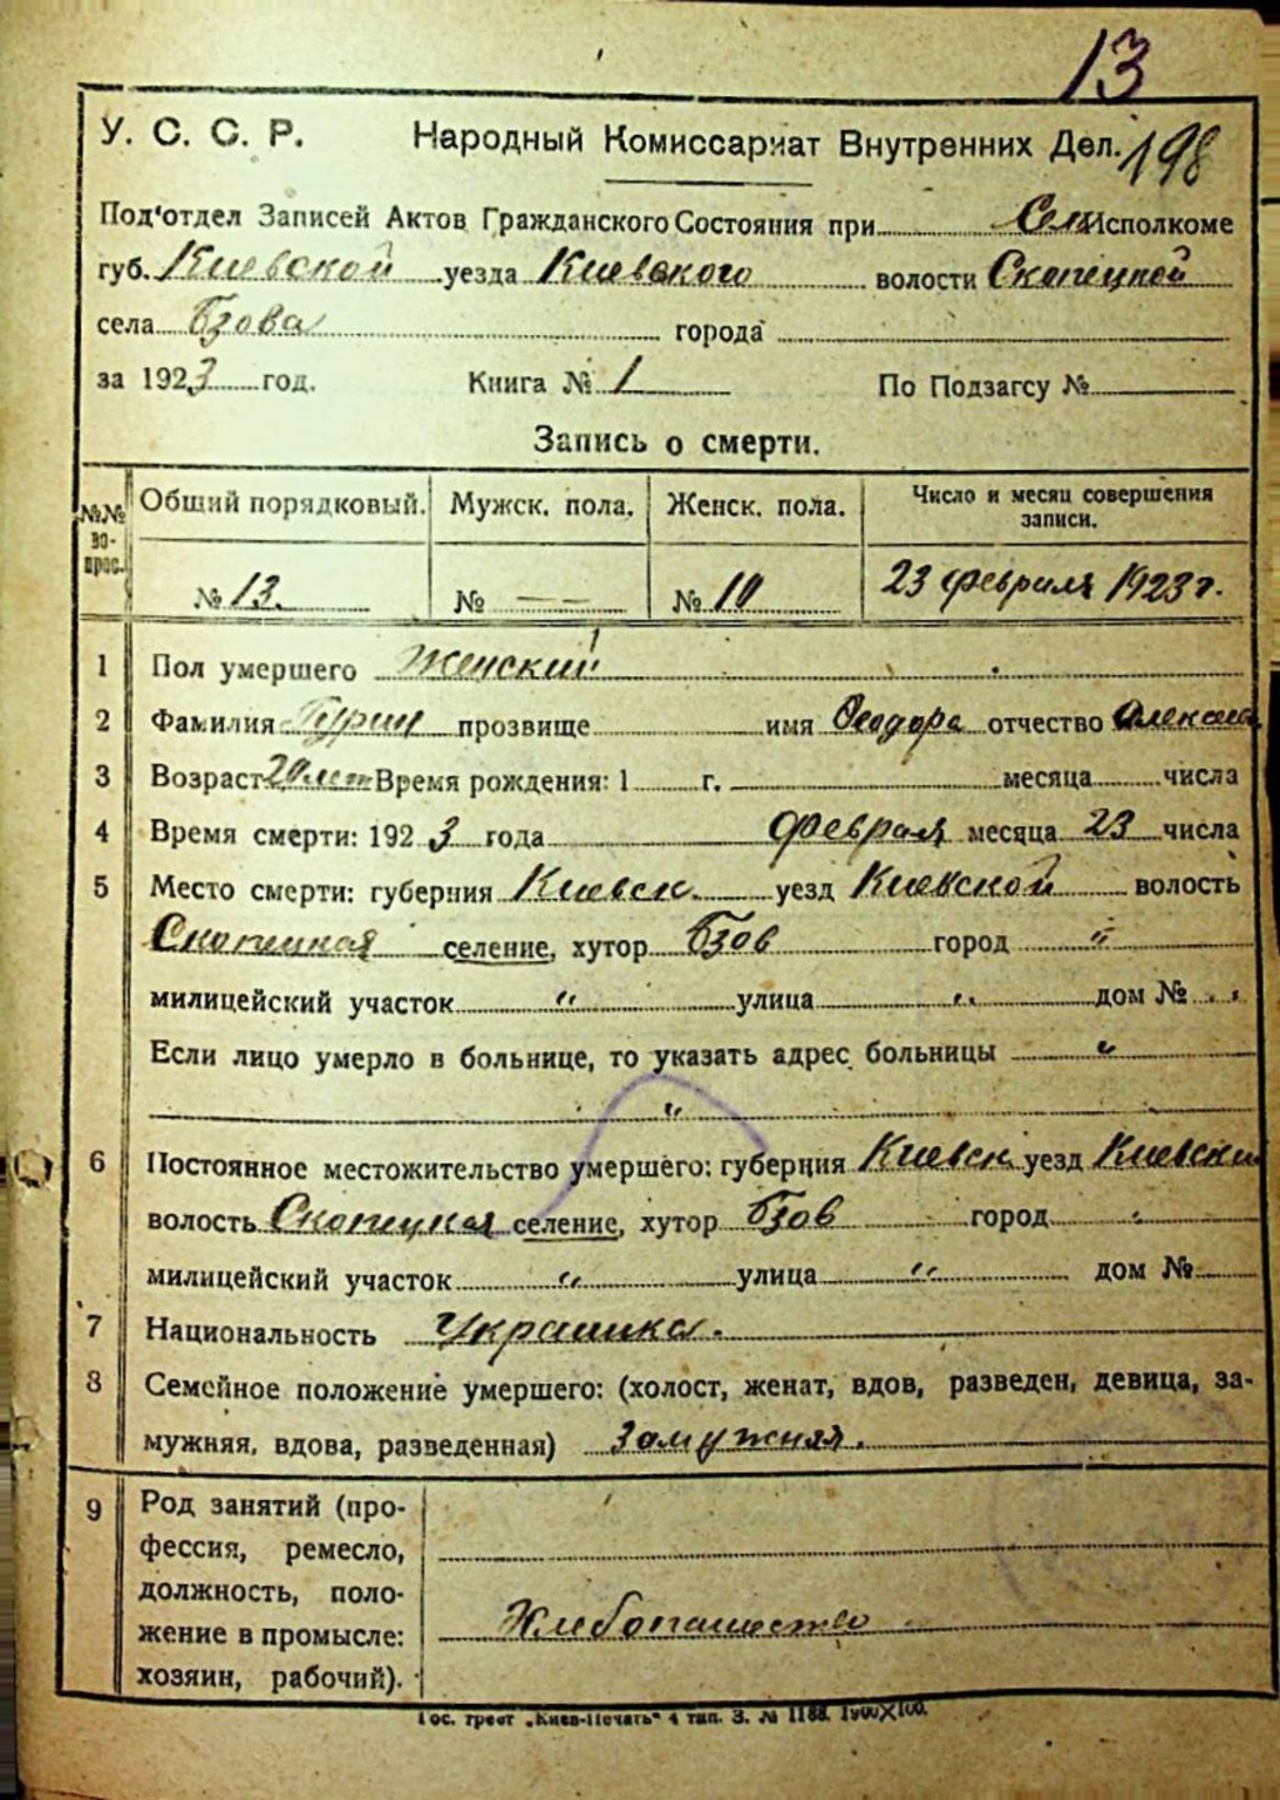 13
У. С. С. Р. Народный Комиссариат Внутренних Дел. 198
Под'отдел Записей Актов Гражданского Состояния при Сель Исполкоме
губ. Киевской уезда Киевского волости Скопецкой
села Бзова города
за 1923 год. Книга № 1 По Подзагсу №
Запись о смерти.
№№ во-прос. Общий порядковый. Мужск. пола. Женск. пола. Число и месяц совершения записи.
№ 13. № — — № 10 23 февраля 1923 г.
1 Пол умершего Женский
2 Фамилия прозвище имя Феодора отчество
3 Возраст 20 лет Время рождения: 1 г. месяца числа
4 Время смерти: 1923 года февраля месяца 23 числа
5 Место смерти: губерния Киевск. уезд Киевской волость
Скопецкая селение, хутор Бзов город "
милицейский участок " улица " дом № "
Если лицо умерло в больнице, то указать адрес больницы "
"
6 Постоянное местожительство умершего: губерния Киевск уезд Киевский
волость Скопецкая селение, хутор Бзов город "
милицейский участок " улица " дом №
7 Национальность Украинка.
8 Семейное положение умершего: (холост, женат, вдов, разведен, девица, за-
мужняя, вдова, разведенная) Замужняя.
9 Род занятий (про-
фессия, ремесло,
должность, поло-
жение в промысле: Хлебопашество
хозяин, рабочий).
Гос. трест „Киев-Печать" 4 тип. З. № 1188. 1900X100.